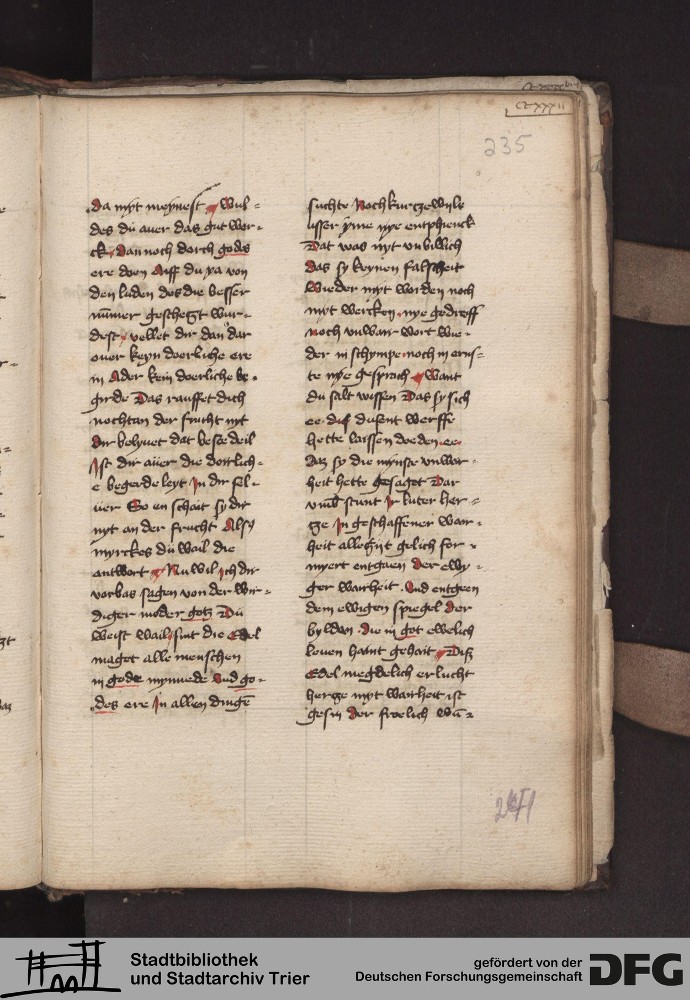 CCXXXII
235
da myt meynest wul=
des du auer das gut wer=
ck dannoch dorch godes
ere doen Auff du ya von
den luden des die besser
nu͞mer geschetzt wur=
dest vellet dir dan dar
ouer keyn doerliche ere
in Ader kein doerliche be=
girde Das rauffet dich
nochtan der frucht nyt
Dir belyuet dat besce deil
Jst dir auer die doitlich=
e begerde leyt Jn dir sel=
uer So en schait sy dir
nyt an der frucht Also
myrckes du wail die
antwort Nu wil ich dir
vorbas sagen von der wir=
diger moder gotz Du
weist wail sint die Edel
maget alle menschen
in gode mynnede Vnd go=
des ere Jn allen dinge͞
suchte Noch kurtzewyle
usser yrme nye entphienck
Dat was nyt vnbillich
das sy keynen falscheit
wieder myt worden noch
myt wercken nye gedreff
noch vnwair wort wie=
der in schympe noch in erns=
te nye gesprach Want
du salt wissen Das sy sich
ee duß dusent werffe
hette laissen doeden ee
Das sy die mynste vnwar=
heit hette gesaget Dar
vmb stunt Jr luter her=
tze Jn geschaffener wair=
heit alletzijt gelich for=
myert entgaen Der ewy=
ger wairheit Vnd entgeen
dem ewigen spiegel der
bylden die in got ewelich
leuen haint gehait Diß
Edel megdelich erlucht
hertze myt wairheit ist
gesin Der froelich
241
Stadtbibliothek
und Stadtarchiv Trier
gefördert von der
Deutschen Forschungsgemeinschaft
DFG